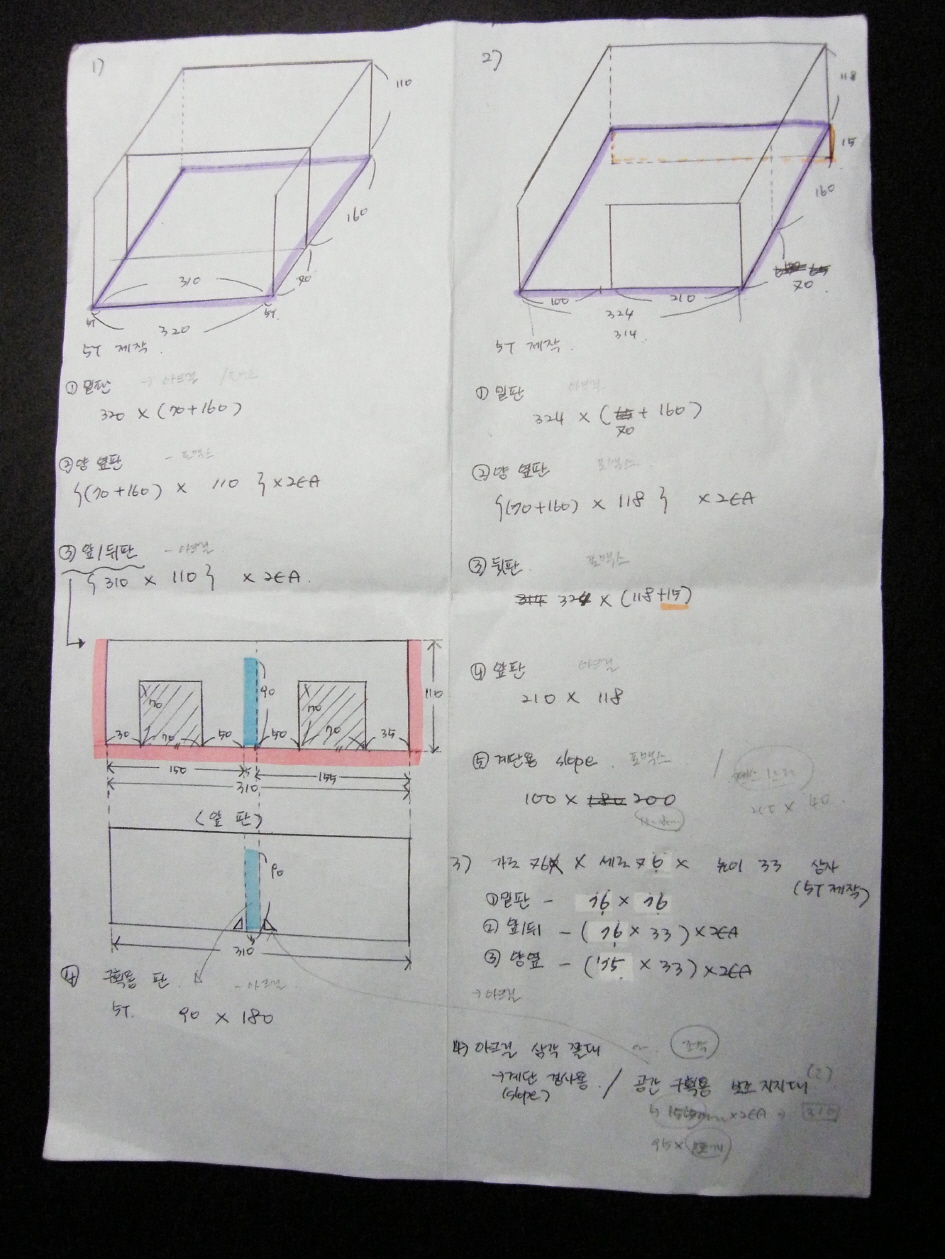 1)
110
160
310
70
5T
5T
320
5T 제작.
① 밑판 → 아크릴
320 × (70+160)
② 양 옆판 - 포맥스
{(70+160) × 110 } × 2EA
③ 앞/뒤판 - 아크릴
{ 310 × 110 } × 2EA.
90
110
70
70
30
70
50
50
70
35
150
155
310
(앞 판)
90
310
④ 구획용 판. - 아크릴
5T. 90 × 180
2)
118
15
160
70
100
210
324
314
5T 제작.
① 밑판 아크릴
324 × ( + 160)
70
② 양 옆판 포맥스.
{(70+160) × 118 } × 2EA
③ 뒷판. 포맥스
314 324 × (118+15)
④ 앞판 아크릴
210 × 118
⑤ 계단용 slope. 포맥스 /
100 × 180 200
200 × 40
3) 가로 76 × 세로 76 × 높이 33 상자
(5T 제작)
① 밑판 - 76 × 76
② 앞/뒤 - (76 × 33) × 2EA
③ 양옆 - (75 × 33) × 2EA
→ 아크릴
4) 아크릴 삼각 쫄대 ~ 조각
→ 계단 경사용 / 공간 구획용 보조 지지대 (2)
(slope)
× 2EA → 310
95 ×